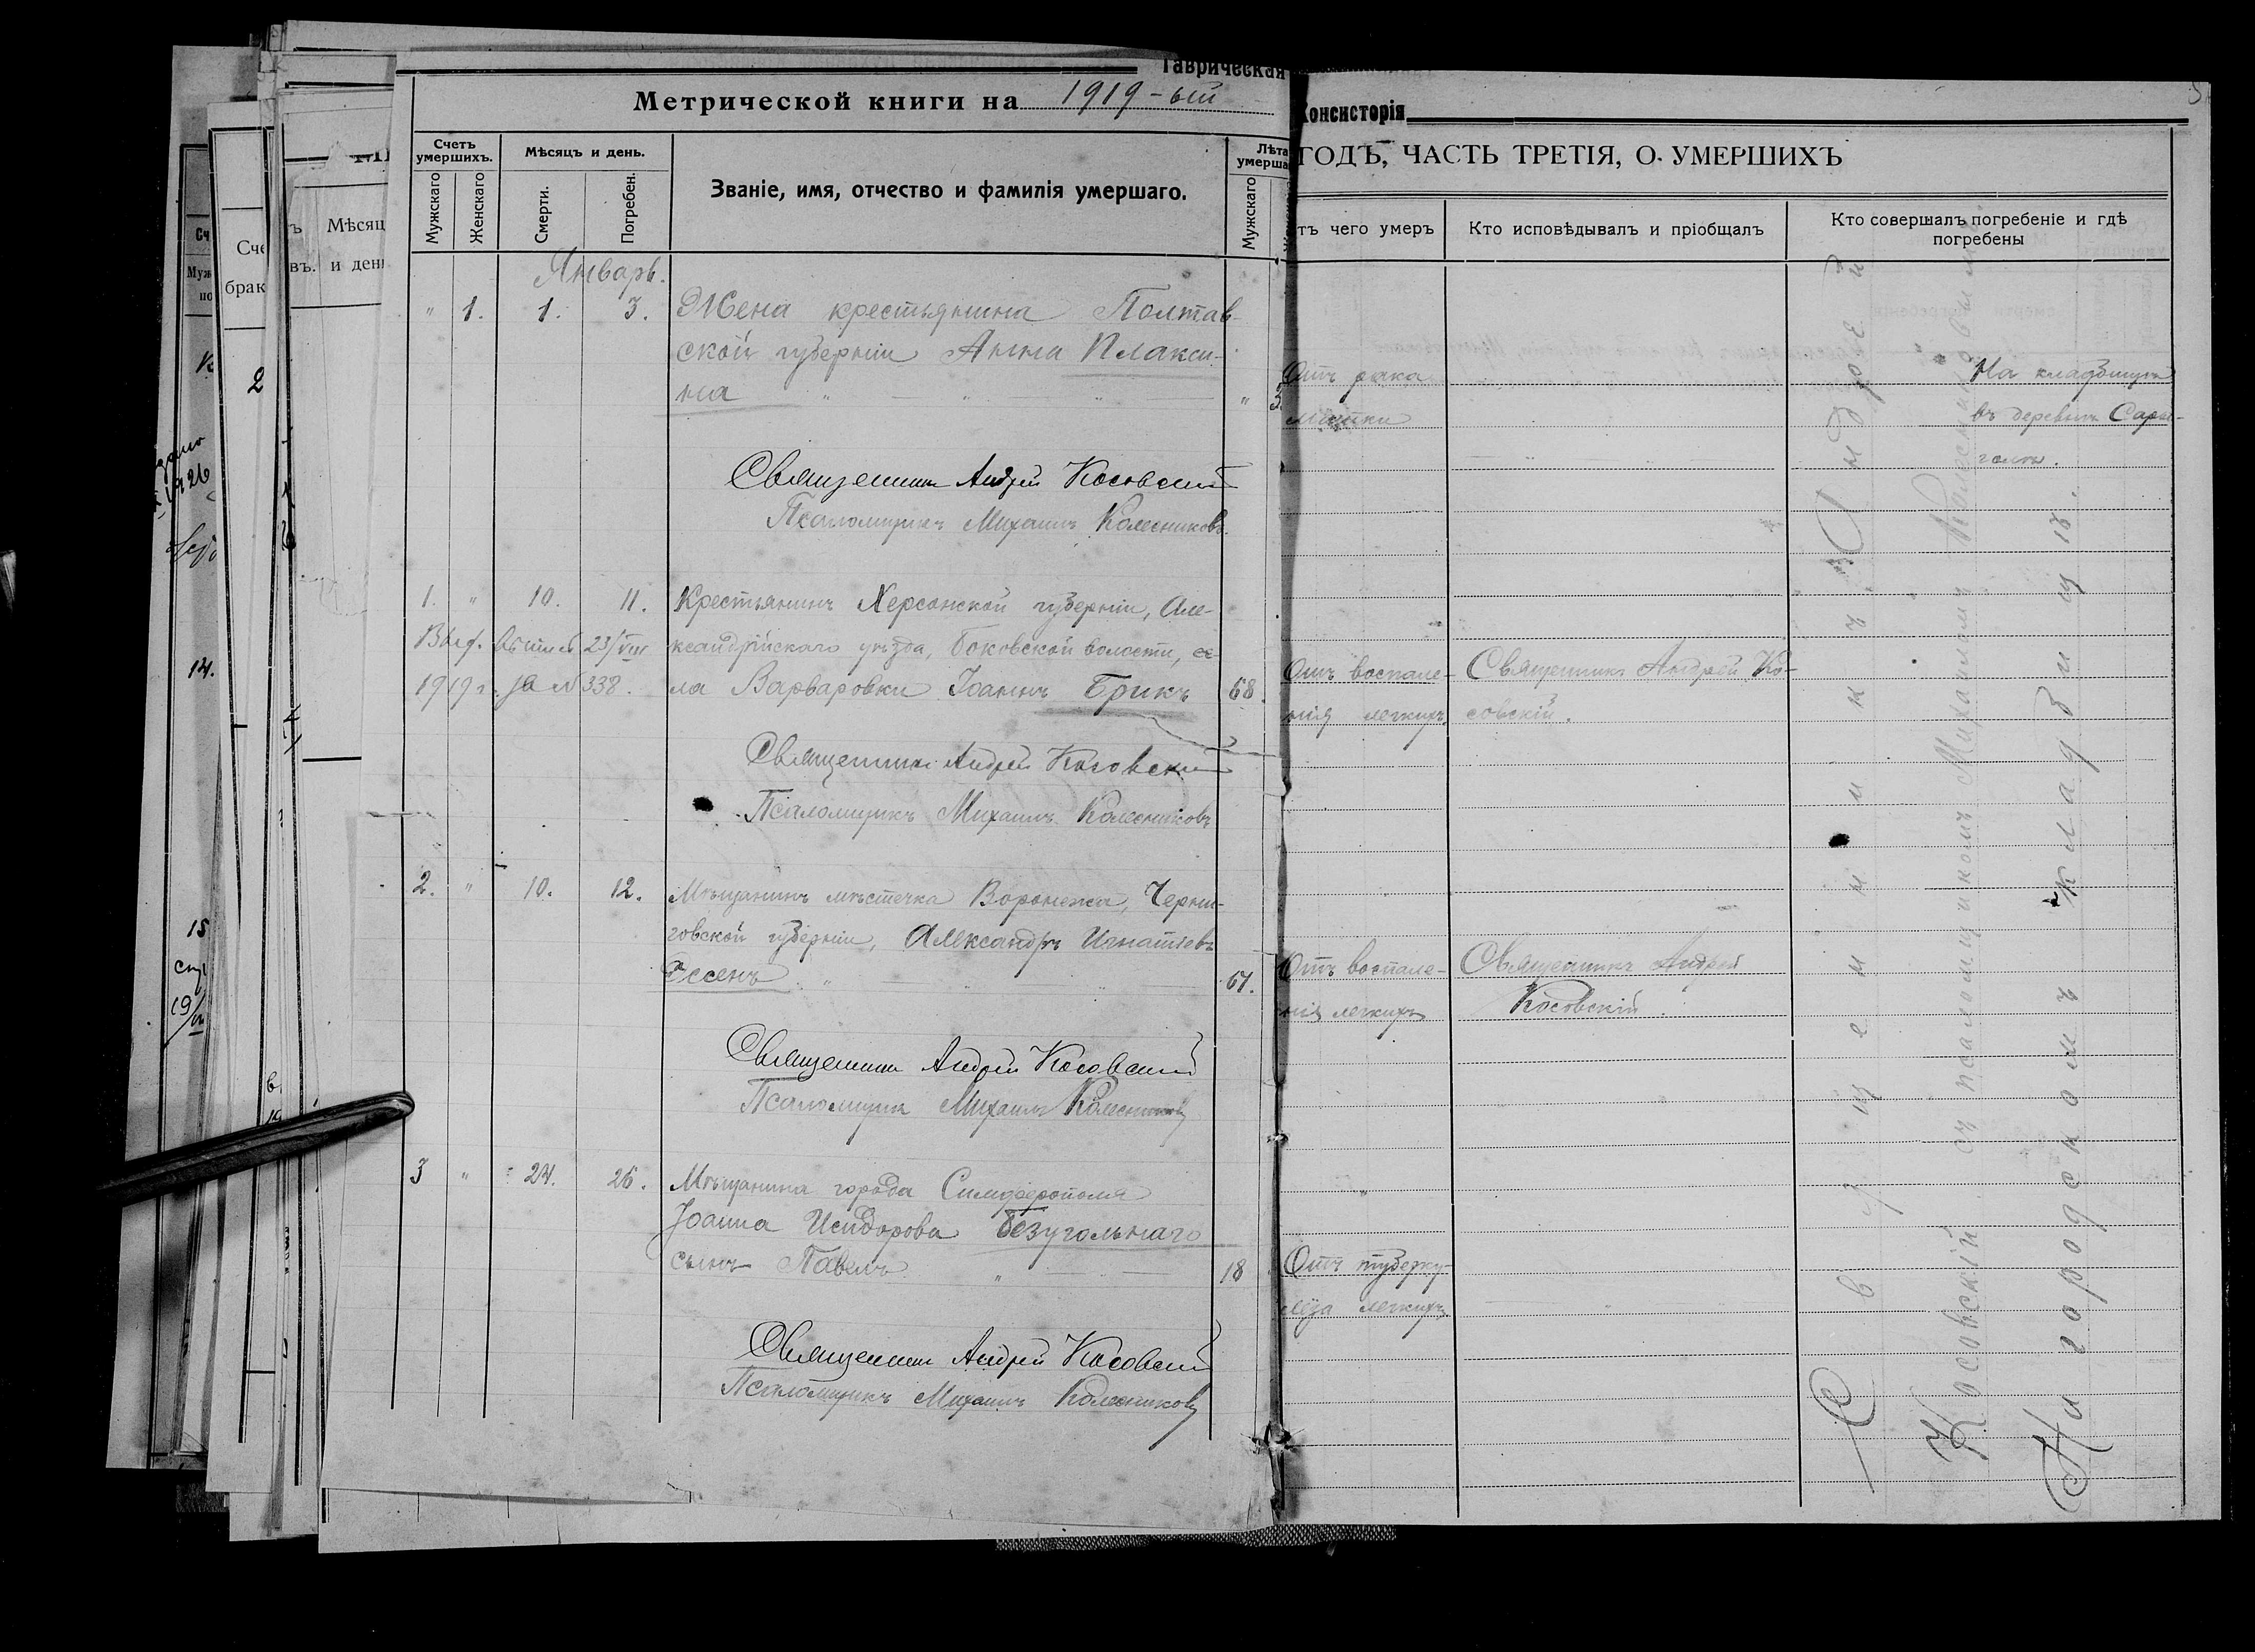 Таврическая
Метрической книги на 1919-ый
Консисторія
ГОДЪ, ЧАСТЬ ТРЕТІЯ, О УМЕРШИХЪ
Счетъ умершихъ.
Мѣсяцъ и день.
Званіе, имя, отчество и фамилія умершаго.
Лѣта
умерша
Мужскаго
Женскаго
Смерти.
Погребен.
Мужскаго
тъ чего умеръ
Кто исповѣдывалъ и пріобщалъ
Кто совершалъ погребеніе и гдѣ
погребены
Январь.
" 1. 1. 3. Жена крестьянина Полтав-
ской губерніи Анна Плакси-
на " " " "
Отъ рака
На кладбищѣ
въ деревнѣ Сары-
голы.
Священникъ Андрей Косовскій
Псаломщикъ Михаилъ Колесниковъ
1. " 10. 11. Крестьянинъ Херсонской губерніи, Але-
23/VIII ксандрійскаго уѣзда, Боковской волости, се-
1919 г. за № 338. ла Варваровки Іоаннъ Брикъ 68.
Отъ воспале-
нія легкихъ.
Священникъ Андрей Ко-
совскій.
Священникъ Андрей Косовскій
Псаломщикъ Михаилъ Колесниковъ
2. " 10. 12. Мѣщанинъ мѣстечка Воронежа, Черни-
говской губерніи, Александръ Игнатіевъ
Эссенъ " " 61.
Отъ воспале-
нія легкихъ
Священникъ Андрей
Косовскій.
Священникъ Андрей Косовскій
Псаломщикъ Михаилъ Колесниковъ
3 " 24. 26. Мѣщанина города Симферополя
Іоанна Исидорова Безугольнаго
сынъ Павелъ " 18
Отъ туберку-
лёза легкихъ
Священникъ Андрей Косовскій
Псаломщикъ Михаилъ Колесниковъ
Священникъ Андрей
Косовскій съ псаломщикомъ Михаиломъ Колесниковымъ
На городскомъ кладбищѣ.
Сче
брак
2
Мѣсяц
и ден
14.
15
19/
1926